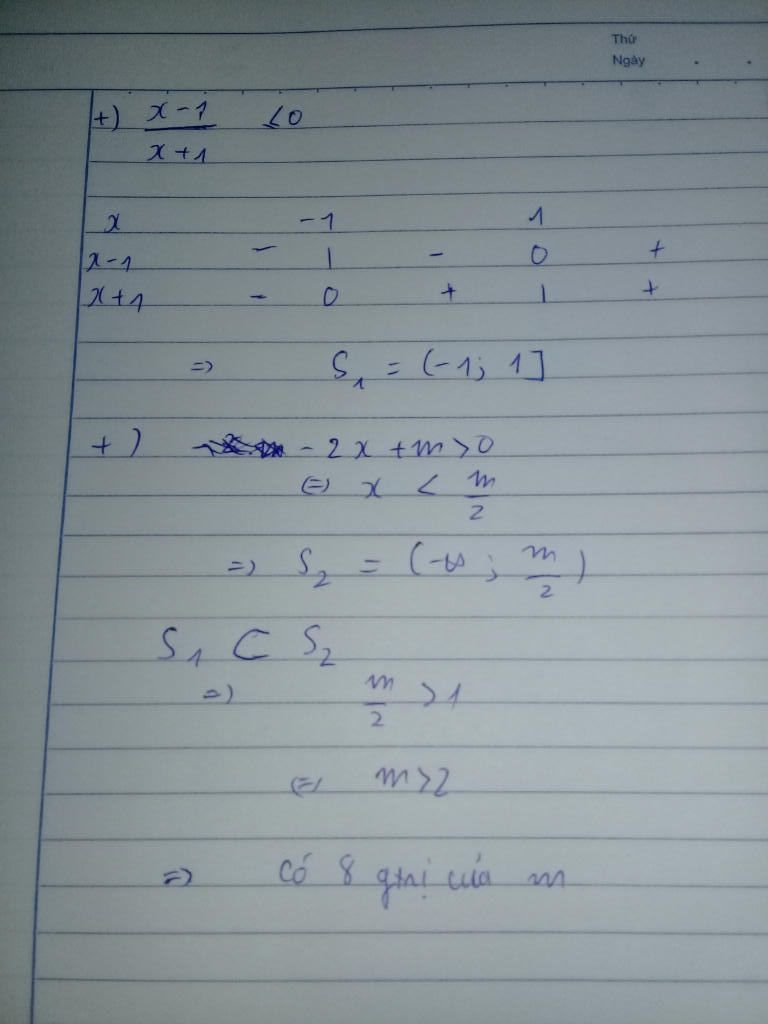 Thứ
Ngày . .
+) x-1 ≤0
x+1
x -1 1
x-1 - | - 0 +
x+1 - 0 + | +
=> S1 = (-1; 1]
+) -2x +m>0
<=> x < m/2
=> S2 = (-∞; m/2)
S1 ⊂ S2
=> m/2 >1
<=> m>2
=> Có 8 gtrị của m